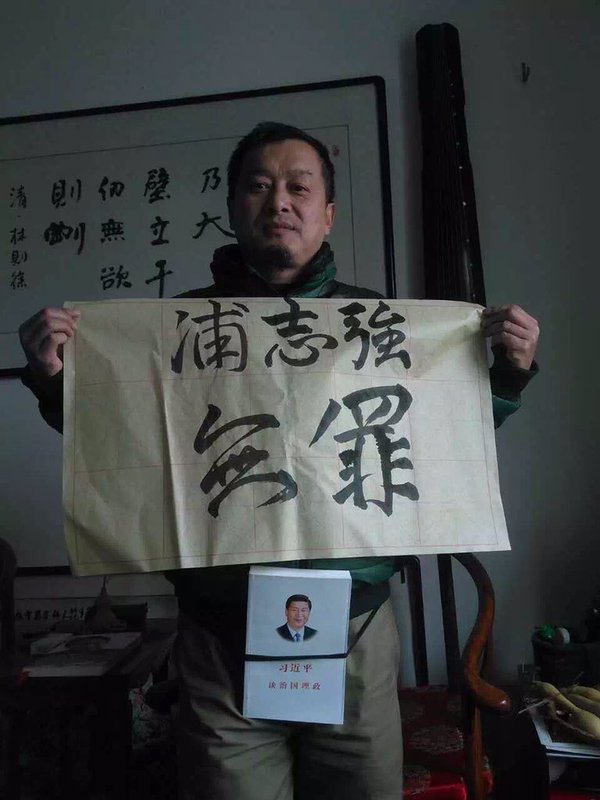 乃大
壁立千
仞無欲
則剛
清·林則徐
浦志強
無罪
习近平
谈治国理政